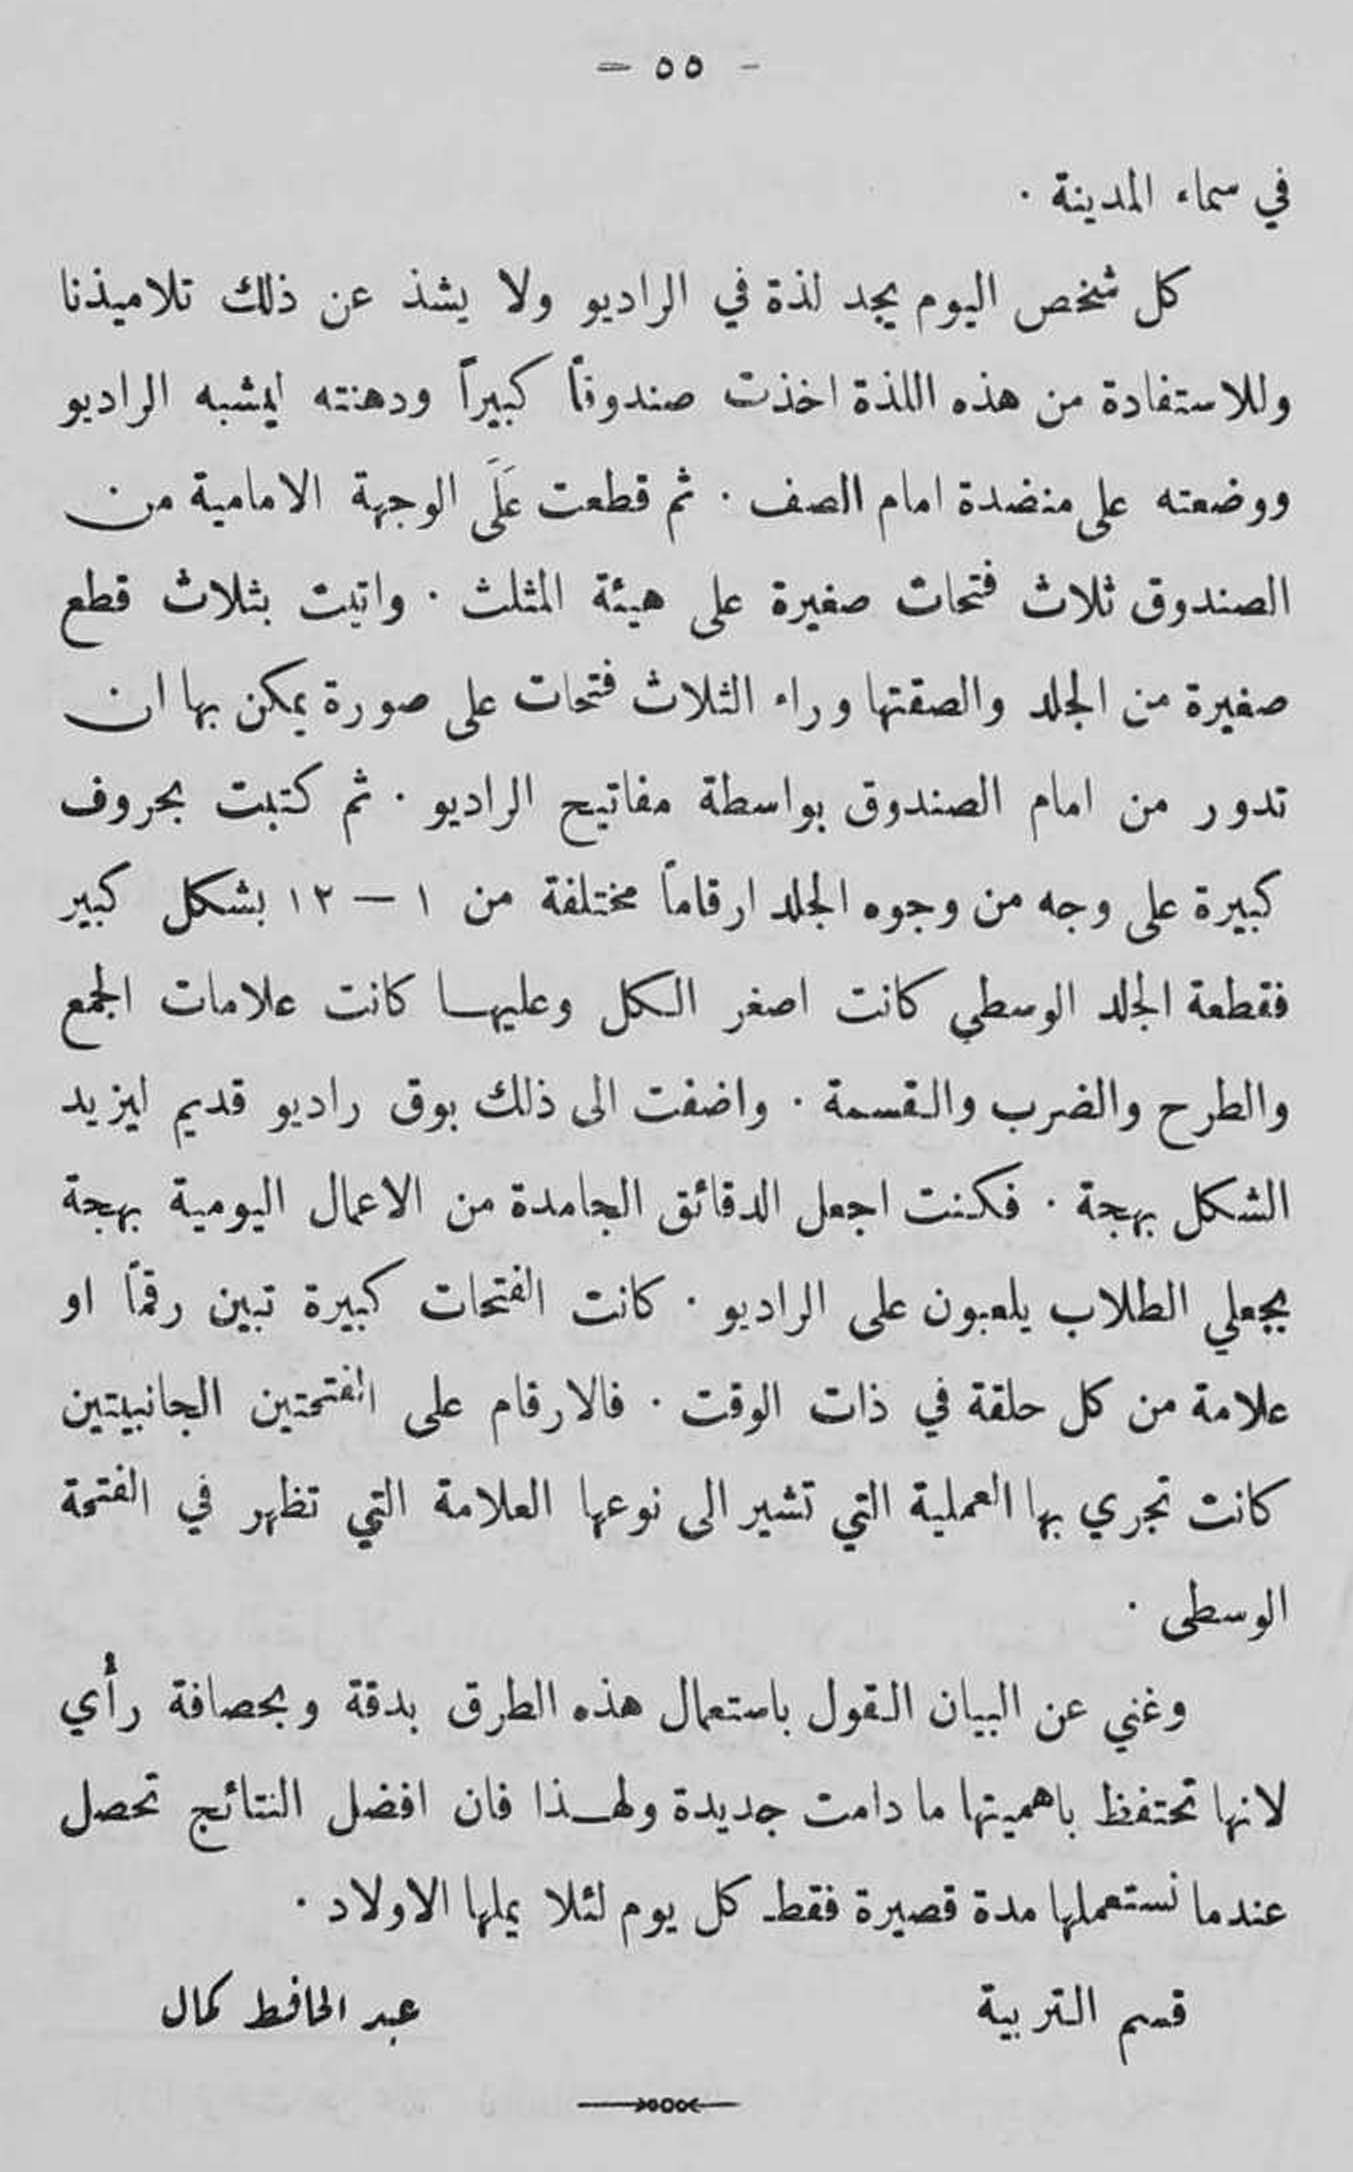 - ٥٥ -
في سماء المدينة .
كل شخص اليوم يجد لذة في الراديو ولا يشذ عن ذلك تلاميذنا
وللاستفادة من هذه اللذة اخذت صندوقاً كبيراً ودهنته ليشبه الراديو
ووضعته على منضدة امام الصف . ثم قطعت عَلَى الوجهة الامامية من
الصندوق ثلاث فتحات صغيرة على هيئة المثلث . واتيت بثلاث قطع
صغيرة من الجلد والصقتها وراء الثلاث فتحات على صورة يمكن بها ان
تدور من امام الصندوق بواسطة مفاتيح الراديو . ثم كتبت بحروف
كبيرة على وجه من وجوه الجلد ارقاماً مختلفة من ١ — ١٢ بشكل كبير
فقطعة الجلد الوسطي كانت اصغر الكل وعليها كانت علامات الجمع
والطرح والضرب والقسمة . واضفت الى ذلك بوق راديو قديم ليزيد
الشكل بهجة . فكنت اجعل الدقائق الجامدة من الاعمال اليومية بهجة
بجعلي الطلاب يلعبون على الراديو . كانت الفتحات كبيرة تبين رقماً او
علامة من كل حلقة في ذات الوقت . فالارقام على الفتحتين الجانبيتين
كانت تجري بها العملية التي تشير الى نوعها العلامة التي تظهر في الفتحة
الوسطى .
وغني عن البيان القول باستعمال هذه الطرق بدقة وبحصافة رأي
لانها تحتفظ باهميتها ما دامت جديدة ولهذا فان افضل النتائج تحصل
عندما نستعملها مدة قصيرة فقط كل يوم لئلا يملها الاولاد .
قسم التربية عبد الحافظ كمال